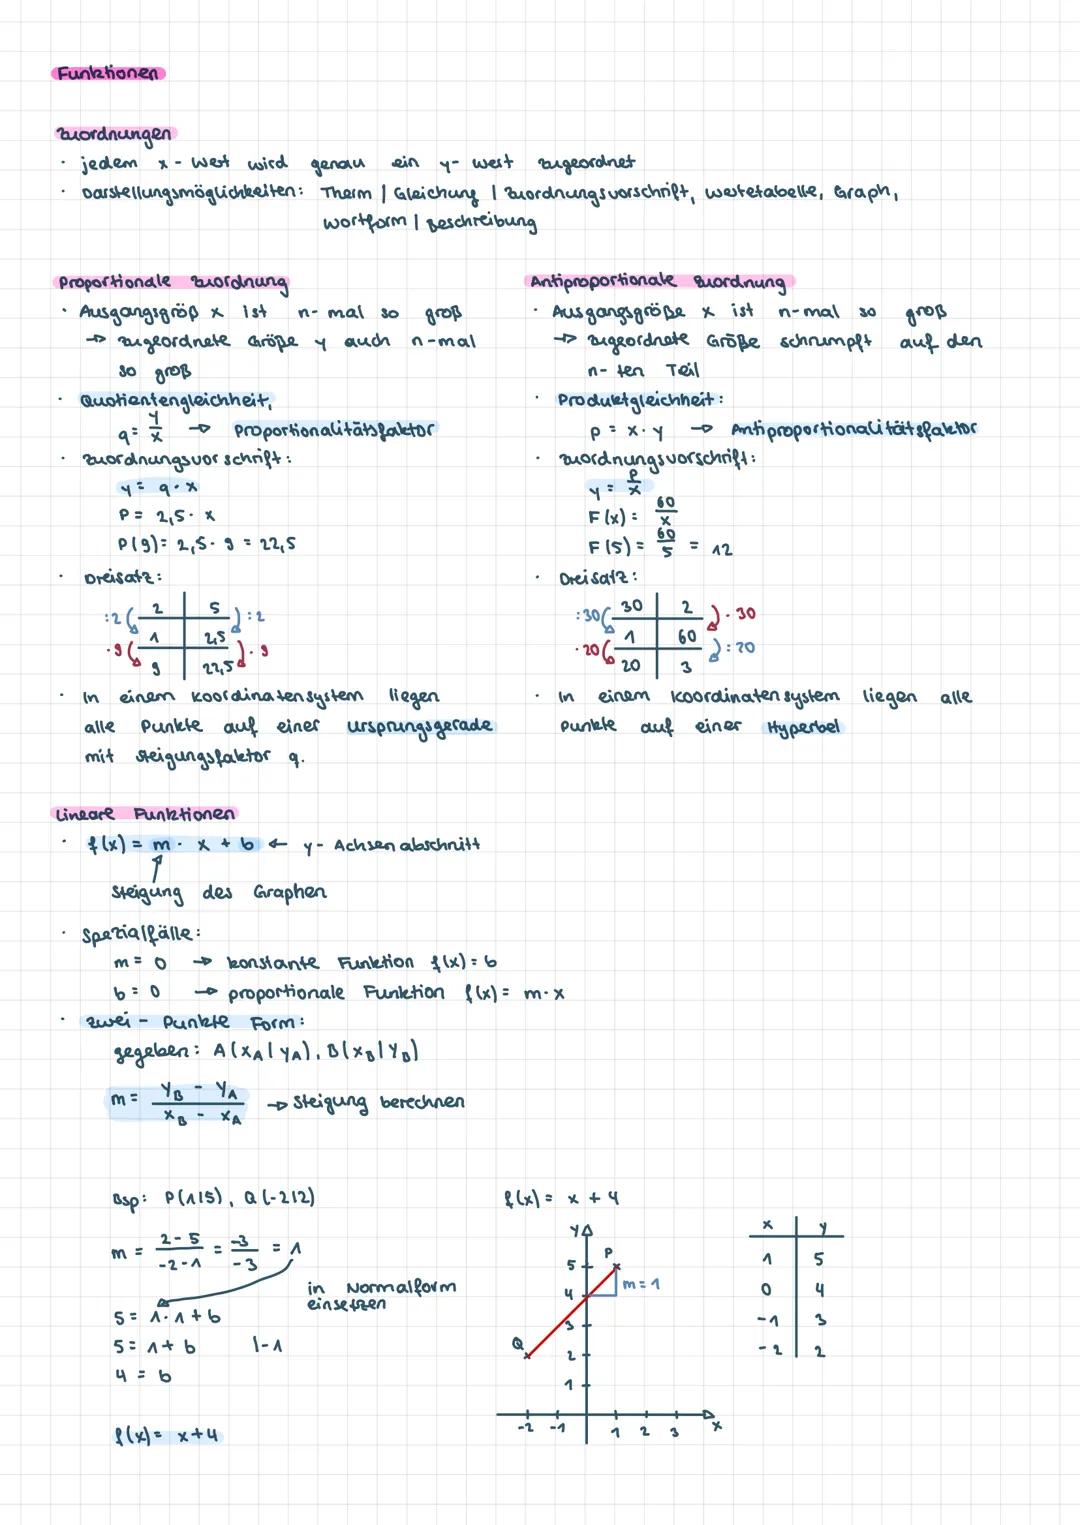 Funktionen
Zuordnungen
· jedem x-Wert wird genau ein y-Wert zugeordnet
· Darstellungsmöglichkeiten: Therm | Gleichung | Zuordnungsvorschrift, Wertetabelle, Graph,
Wortform | Beschreibung
Proportionale Zuordnung
· Ausgangsgröß x ist n-mal so groß
→ zugeordnete Größe y auch n-mal
so groß
· Quotientengleichheit,
q = y/x → Proportionalitätsfaktor
· Zuordnungsvorschrift:
y = q · x
P = 2,5 · x
P(9) = 2,5 · 9 = 22,5
· Dreisatz:
:2 2 | 5 :2
·9 1 | 2,5 ·9
9 | 22,5
· In einem Koordinatensystem liegen
alle Punkte auf einer Ursprungsgerade
mit Steigungsfaktor q.
Antiproportionale Zuordnung
· Ausgangsgröße x ist n-mal so groß
→ zugeordnete Größe schrumpft auf den
n-ten Teil
· Produktgleichheit:
p = x · y → Antiproportionalitätsfaktor
· Zuordnungsvorschrift:
y = p/x
F(x) = 60/x
F(5) = 60/5 = 12
· Dreisatz:
:30 30 | 2 ·30
·20 1 | 60 :20
20 | 3
· In einem Koordinatensystem liegen alle
Punkte auf einer Hyperbel
Lineare Funktionen
· f(x) = m · x + b ← y-Achsenabschnitt
Steigung des Graphen
· Spezialfälle:
m = 0 → konstante Funktion f(x) = b
b = 0 → proportionale Funktion f(x) = m·x
· Zwei-Punkte Form:
gegeben: A(xA|yA), B(xB|yB)
m = (yB - yA)/(xB - xA) → Steigung berechnen
Bsp: P(1|5), Q(-2|2)
m = (2-5)/(-2-1) = -3/-3 = 1
in Normalform
einsetzen
5 = 1·1+b
5 = 1+b |-1
4 = b
f(x) = x+4
f(x) = x + 4
y
5 P
4 m=1
3
Q
2
1
-2 -1 1 2 3 x
x | y
1 | 5
0 | 4
-1 | 3
-2 | 2